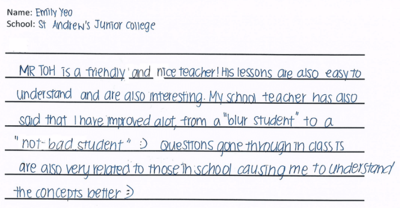 Name: Emily Yeo
School: St Andrew's Junior College
MR TOH is a friendly and nice teacher! His lessons are also easy to
understand and are also interesting. My school teacher has also
said that I have improved alot, from a "blur student" to a
"not-bad student" :) Questions gone through in class is
are also very related to those in school causing me to understand
the concepts better :)